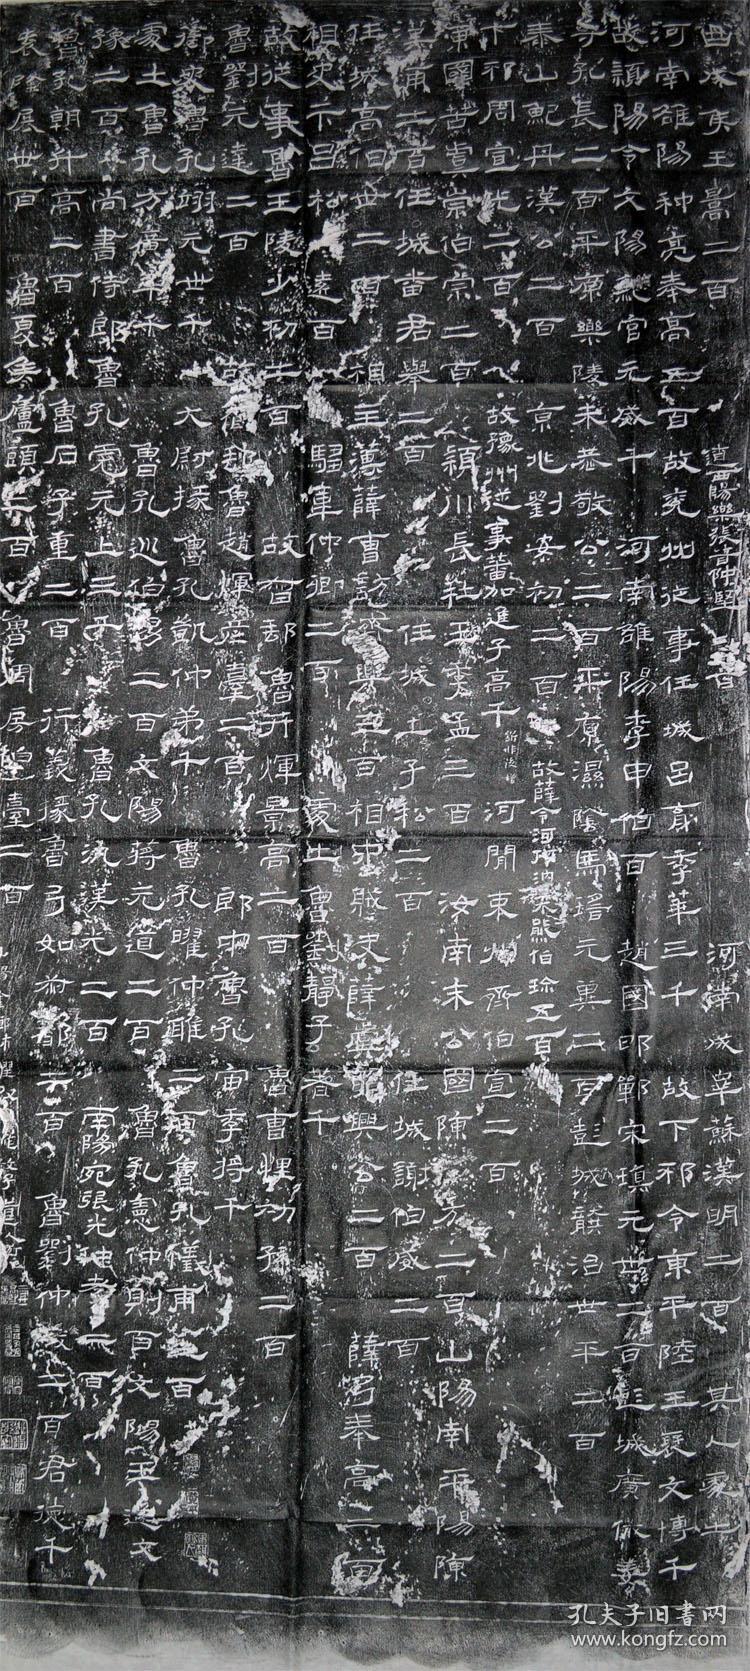 曲成侯王暠二百 遼西陽樂張普仲堅二百 河南成睪蘇漢明二百 其人處士
河南雒陽种亮奉高五百 故兗州從事任城呂育季華三千 故下邳令東平陸王褒文博千
故潁陽令文陽鮑宮元威千 河南雒陽李申伯百 趙國邯鄲宋瑱元世二百 彭城廣戚姜
尋 長二百 平原樂陵朱恭敬公二百 平原濕陰馬瑤元冀二百 彭城龔治世平二百
泰山鮑丹漢公二百 京兆劉安初二百 故薛令河內溫朱熊伯珍五百
下邳周宣光二百 故豫州從事蕃加進子高千 河閒束州齊伯宣二百
陳國苦虞崇伯宗二百 潁川長社王季孟三百 汝南宋公國陳漢方二百 山陽南平陽陳
漢甫二百 任城番君舉二百 任城王子松二百 任城謝伯威二百
任城高伯世二百 相主簿薛曹訪濟興三百 相中賊史薛虞韶興公二百 薛弓奉高二百
相史卞呂松 遠百 騶韋仲卿二百 處士魯劉靜子著千
故從事魯王陵少初二百 故督郵魯开煇景高二百 魯曹悝初孫二百
魯劉元達二百 故督郵魯趙煇彥臺二百 郎中魯孔宙季將千
御史魯孔翊元世千 大尉掾魯孔凱仲弟千 魯孔曜仲雅二百 魯孔儀甫二百
處士魯孔方廣率千 魯孔巡伯男二百 文陽蔣元道二百 魯孔憲仲則百 文陽王逸文
豫二百 尚書侍郎魯孔彪元上三千 魯孔汎漢光二百 南陽宛張光仲孝二百
魯孔朝升高二百 魯石子重二百 行義掾魯弓如叔都二百 魯劉仲俊二百 君德千
袁隆展世百 魯夏侯廬頭二百 魯周房伯臺二百
孔夫子旧書网
www.kongfz.com